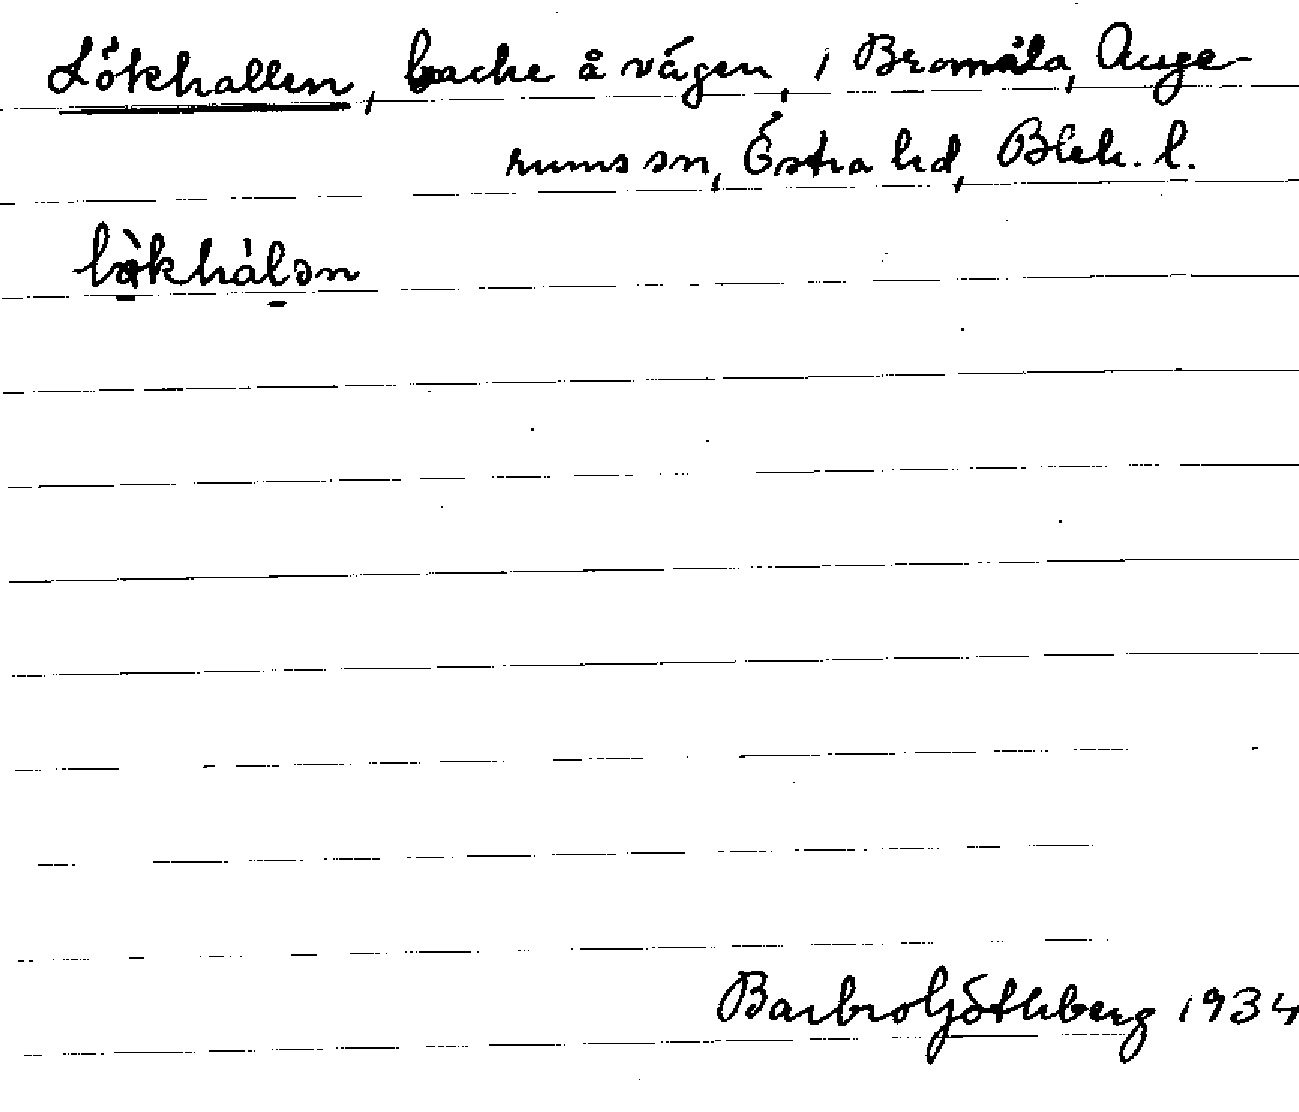 Lökhallen, backe å vägen, i Bromåla, Auge-
rums sn, Östra hd, Blek. l.
lø̀khálən
Barbro Götlberg 1934